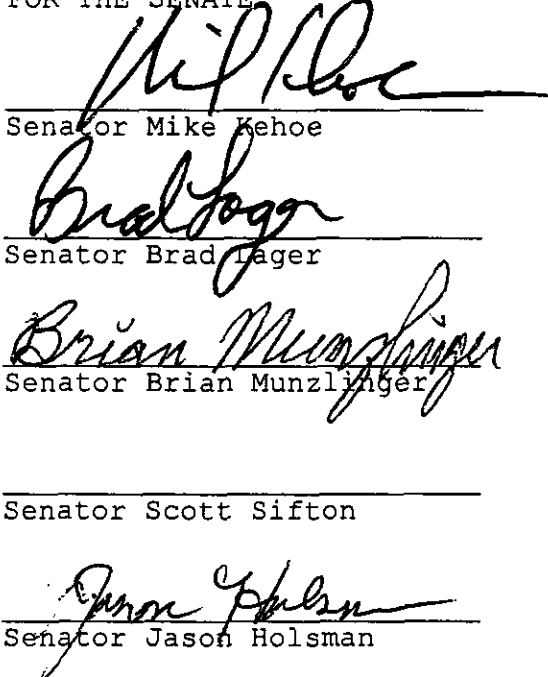 FOR THE SENATE
Mike Kehoe
Senator Mike Kehoe
Brad Lager
Senator Brad Lager
Brian Munzlinger
Senator Brian Munzlinger
Senator Scott Sifton
Jason Holsman
Senator Jason Holsman